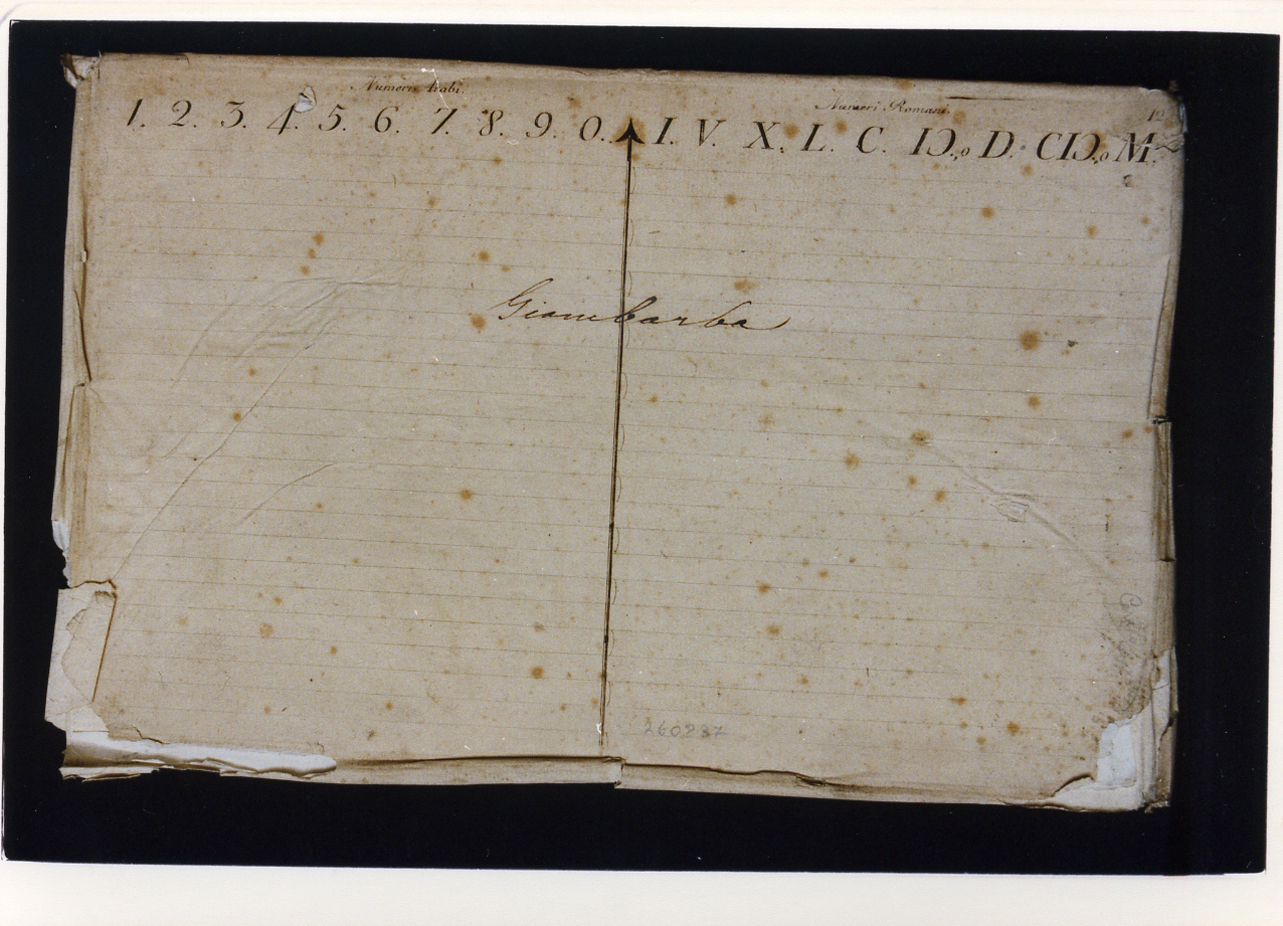 Numeri Arabi.
1. 2. 3. 4. 5. 6. 7. 8. 9. 0.
Numeri Romani.
I. V. X. L. C. IↃ.,o D. CIↃ.,o M.
Giambarba
260837